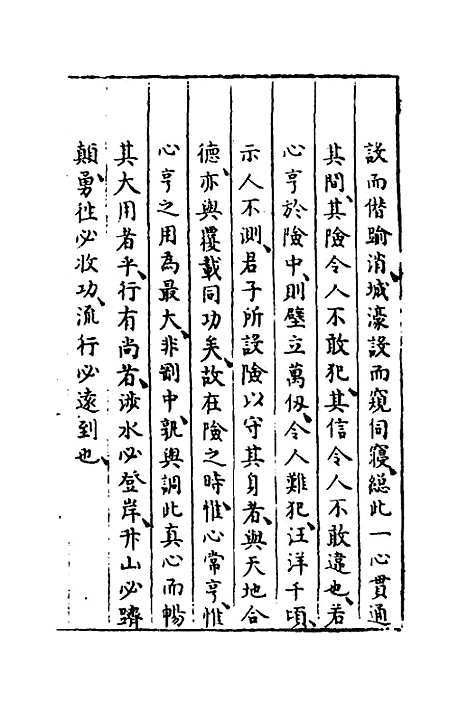 設而僭踰消、城濠設而窺伺寢、總此一心貫通
其間、其險令人不敢犯、其信令人不敢違也、若
心亨於險中、則壁立萬仭、令人難犯、汪洋千頃、
示人不測、君子所設險以守其身者、與天地合
德、亦與覆載同功矣、故在險之時、惟心常亨、惟
心亨之用為最大、非剛中、孰與調此真心而暢
其大用者乎、行有尚者、涉水必登岸、升山必躋
顛、勇徃必收功、流行必遠到也、